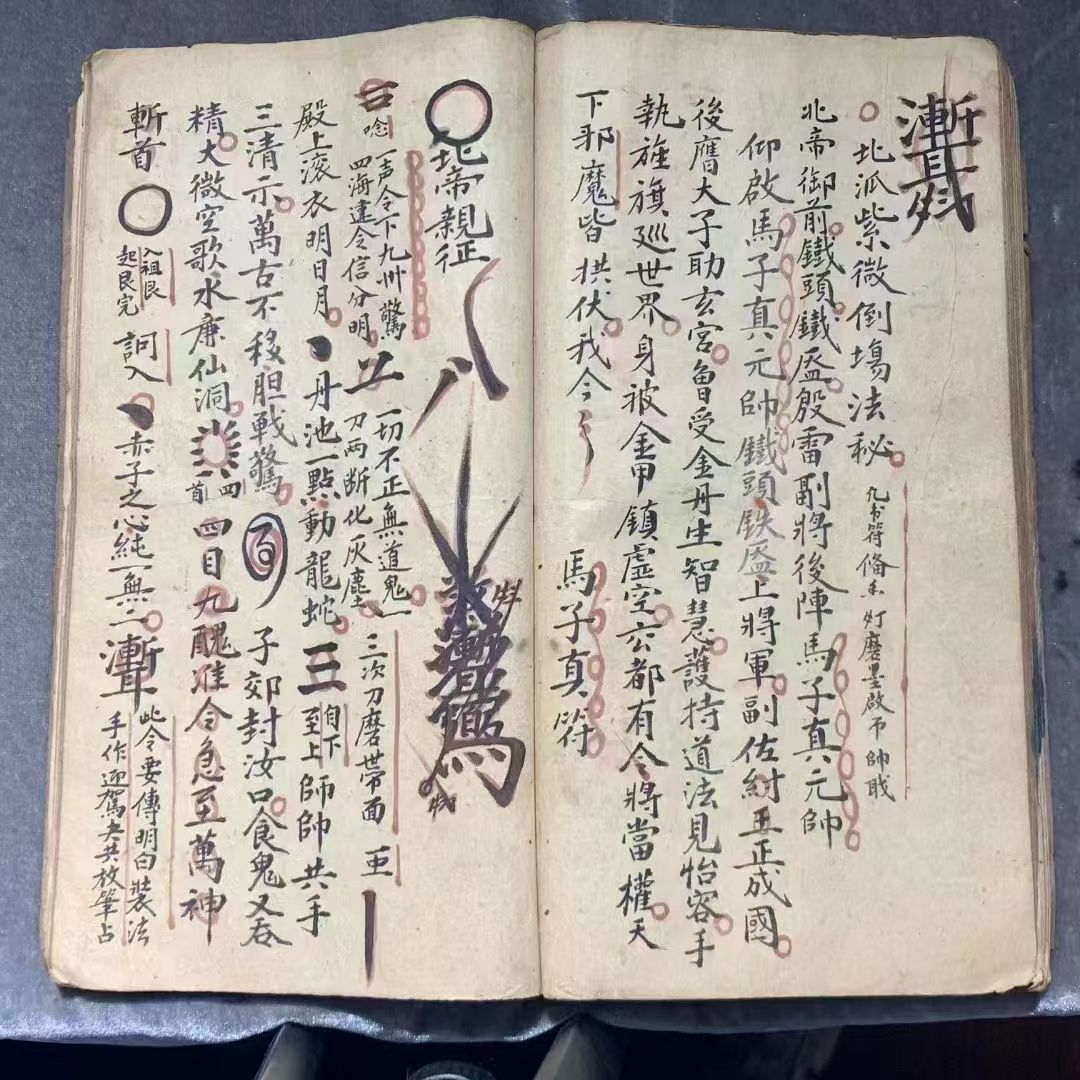 北派紫微倒塲法秘
凡书符俻香灯磨墨啟币帥戝
北帝御前鐵頭鐵盔殷雷副將後陣馬子真元帥
仰啟馬子真元帥鐵頭鉄盔上將軍副佐紂王正成國
後膺大子助玄宮魯受金丹生智慧護持道法見怡容手
執旌旗廵世界身被金甲鎮虛空六都有令將當權天
下邪魔皆拱伏我今
馬子真符
北帝親征
唸
一声令下九州驚
四海違令信分明
一切不正無道鬼一
刀两断化灰塵
三次刀磨帶面
殿上滚衣明日月
丹池一點動龍蛇
三
自下
至上
師帥共手
三清示萬古不移胆戰驚
子郊封汝口食鬼又吞
精大微空歌水廉仙洞
四首
四目九醜准令急至萬神
斬首
入祖恨
起良完
訶入
赤子之心純一無二
此令要傳明白裝法
手作迎駕夫共放筆占